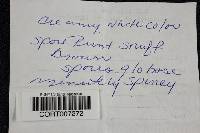 creamy white color
spore print snuff
Brown
spores globose
minutely spiney
CORT007272